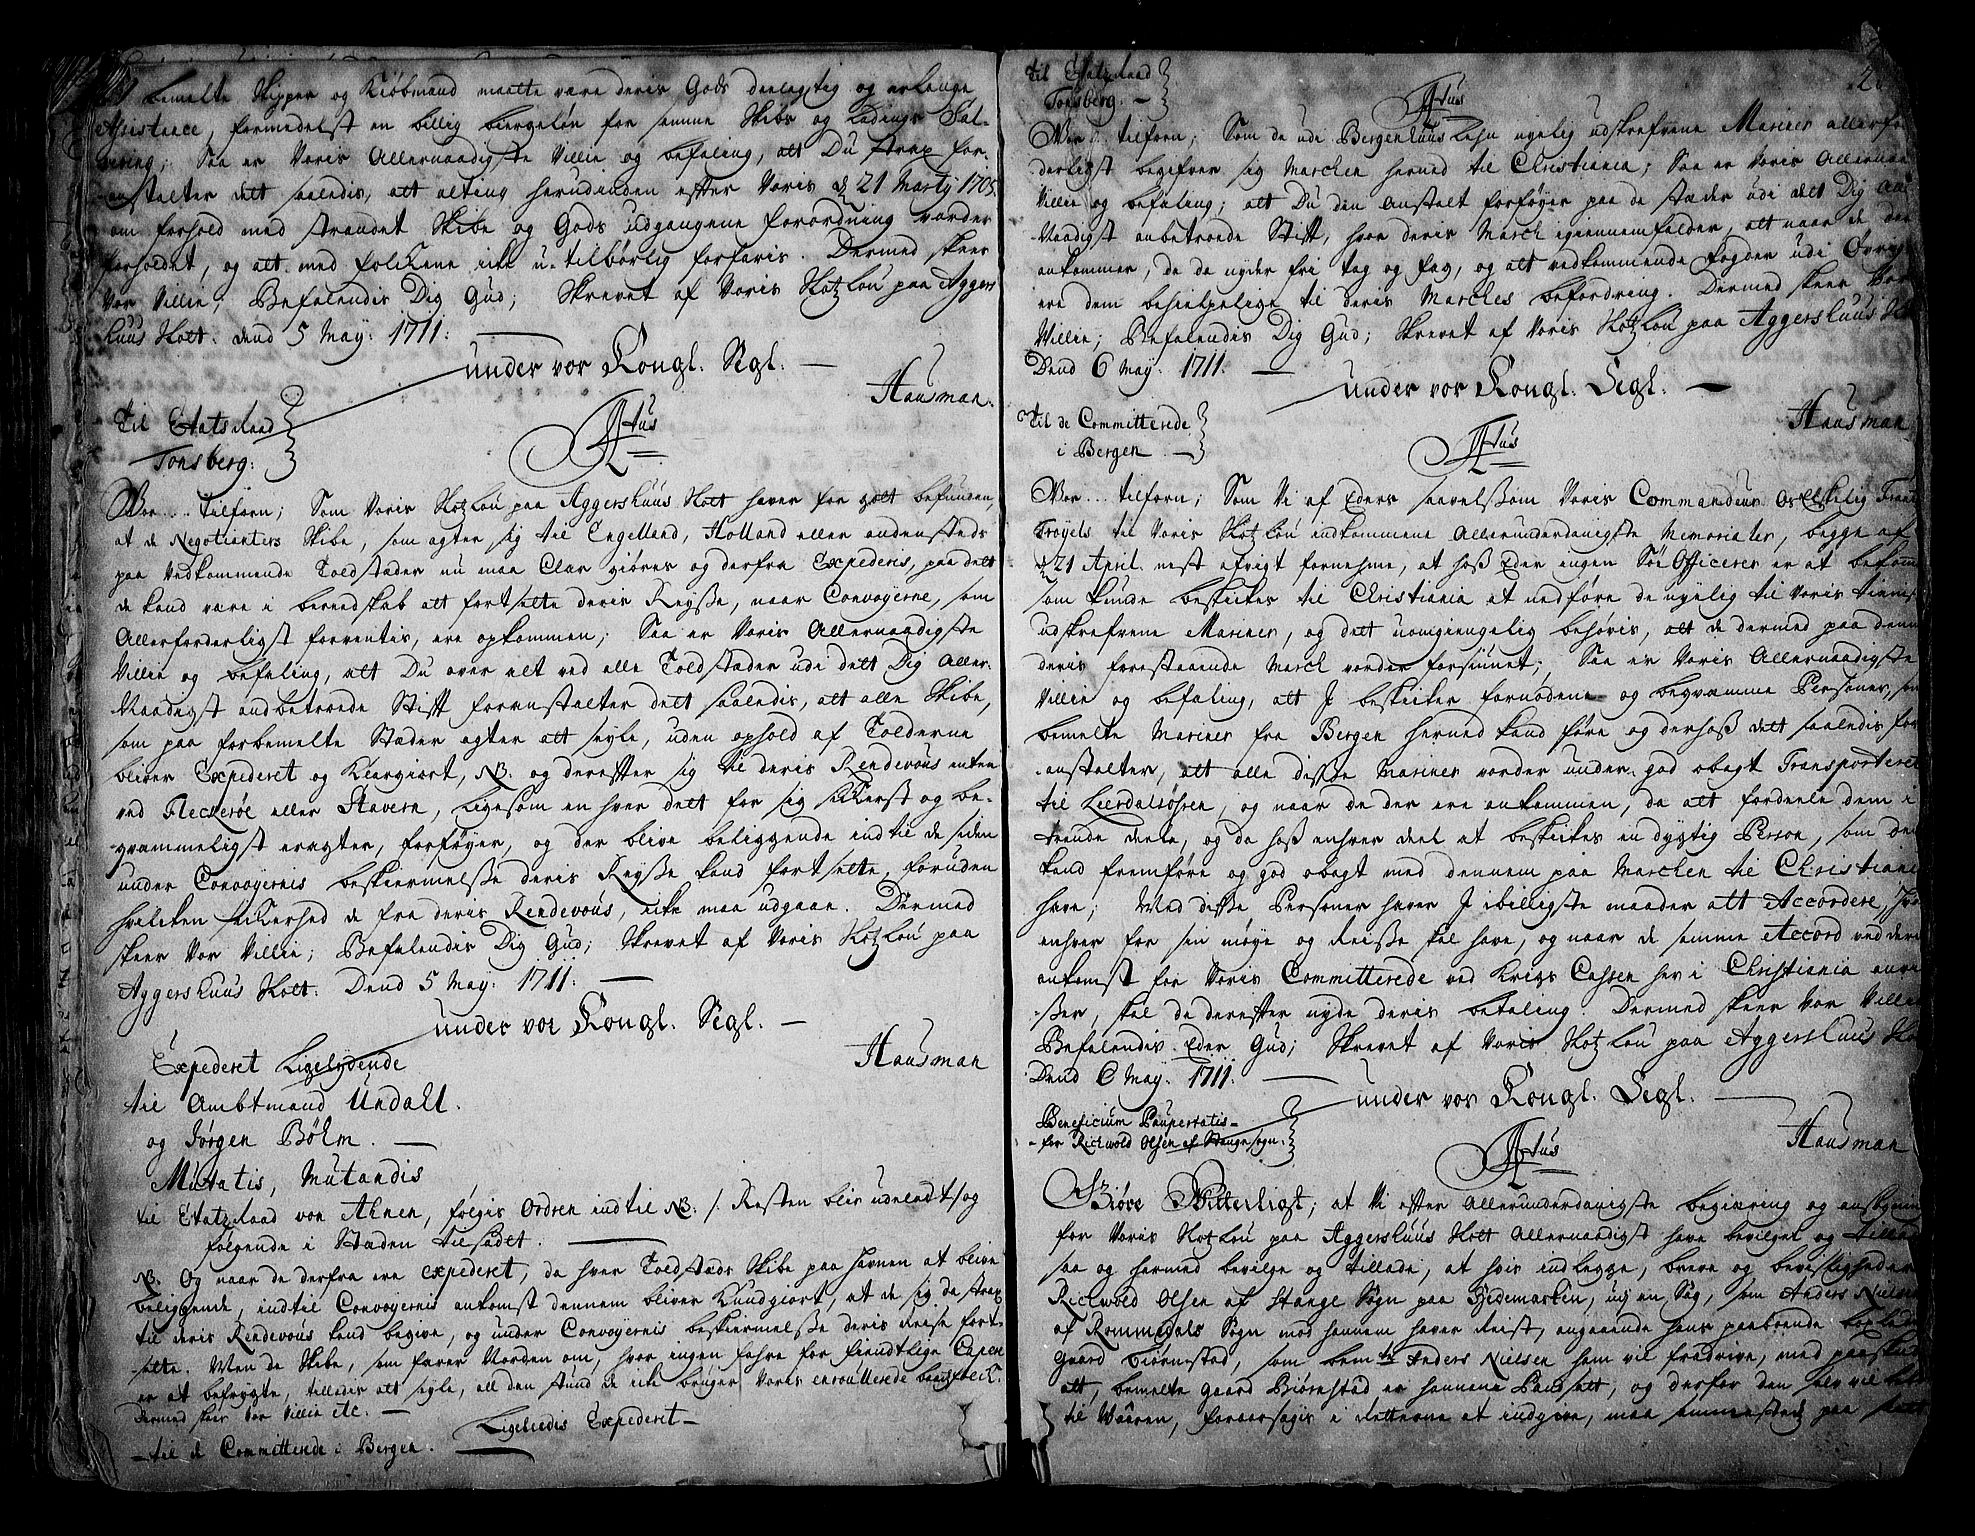 bemelte Skipper og Kiøbmand maatte være deris Gods deelagtig og erlange
Assistence, formedelst en billig biergeløn for samme Skibs og Ladings Sal-
vering; Saa er Voris Allernaadigste Villie og befaling, att Du strax for-
anstalter dett saaledis, att alting herudinden efter Voris d 21 Marty 1705
om forhold med strandet Skibe og Gods udgangne forordning vorder
forholdet, og att med folckene icke u-tilbørlig forfaris. Dermed skeer
Vor Villie; Befalendis Dig Gud; Skrevet af Voris Slotzlou paa Aggers
huus Slott. Dend 5 May: 1711.
under vor Kongl. Segl.
Hausman.
Til Etatsraad
Tonsberg:
Vor... tilforn; Som Voris Slotzlou paa Aggershuus Slott haver for godt befunden,
at de Negotianters Skibe, som agter sig til Engelland, Holland eller andensteds
paa vedkommende Toldstæder nu maa Clar giøres og derfra Expederis, paa dett
de kand være i bereedskab att fortsette deris Reyße, naar Convoyerne, som
Allerforderligst forventis, ere opkommen; Saa er Voris Allernaadigste
Villie og befaling, att Du over alt ved alle Toldstæder udi dett Dig Aller-
Naadigst anbetroede Stift foranstalter dett saaledis, att alle Skibe,
som paa forbemelte Stæder agter att seyle, uden ophold af Tolderne
bliver Expederet og Klargiort, NB. og derefter sig til deris Rendevous enten
ved Fleckerøe eller Stavern, ligesom en hver dett for sig sickerst og be-
qvemmeligst eragter, forføyer, og der blive beliggende indtil de siden
under Convoyernis beskiermelße deris Reyße kand fortsette, foruden
hvilcken sickerhed de fra deris Rendevous, icke maa udgaae. Dermed
skeer Vor Villie; Befalendis Dig Gud; Skrevet af Voris Slotzlou paa
Aggershuus Slott. Dend 5 May: 1711.
under vor Kongl. Segl.
Hausman
Expederet Ligelydende
til Ambtmand Undall.
og Jørgen Bølm.
Mutatis, Mutandis
til Etatzraad von Ahnen, følgis Ordren indtil NB: /. Resten blir udeladt og
følgende i Stæden tilsadt.
NB. Og naar de derfra ere expederet, da hver Toldstæds Skibe paa havnen at blive
beliggende, indtil Convoyernis ankomst dennem bliver kundgiort, at de sig da strax
til deris Rendevous kand begive, og under Convoyernis beskiermelße deris Reise fort-
sette. Men de Skibe, som farer Norden om, hvor ingen fahre for fiendtlige Caper
er at befrygte, tilladis att seyle,
Dermed skeer Vor Villie etc.
Ligeledis Expederet
til de Committerede i Bergen.
Til Etatzraad
Tonsberg.
Vor.. tilforn; Som de udi Bergenhuus Lehn nyelig udskrefvene Mariner allerfor
derligst begifver sig Marchen herned til Christiania; Saa er Voris Allernaa
Villie og befaling; att Du den anstalt forføyer paa de stæder udi dett Dig All
Naadigst anbetroede Stift, hvor deris March igiennemfalder, att naar de der
ankommer, de da nyder fri tag og fag, og att vedkommende Fogder udi Øvrigt
ere dem behielpelige til deris Marches befordring. Dermed skeer Vor
Villie; Befalendis Dig Gud; Skrevet af Voris Slotzlou paa Aggershuus Sl
Dend 6 May. 1711.
under vor Kongl. Segl.
Hausman
Til de Committerede
i Bergen.
Vor... tilforn; Som Vi af Eders saavelßom Voris Commandeur Os Elskelig
Trøyels til Voris Slotzlou indkommene Allerunderdanigste Memorialer, begge af
d 21 April. nest afvigt fornehme, at hoß Eder ingen Søe Officerer er at bekom
som kunde beskickes til Christiania at nedføre de nyelig til Voris tienest
udskrefvene Mariner, og dett uomgiengelig behøvis, att de dermed paa denne
deris forestaaende March vorder forsiunet; Saa er Voris Allernaadigste
Villie og befaling, att I beskicker fornødene og beqvemme Personer, som
bemelte Mariner fra Bergen herned kand føre og derhoß dett saaledis for
anstalter, att alle disße Mariner vorder under god obagt Transporteret
til Leerdalsøhren, og naar de der ere ankommen, da att fordeele dem i
trende deele, og da hoß enhver deel at beskickes en dygtig Person, som dem
kand fremføre og god obagt med dennem paa Marchen til Christiania
have; Med disße Personer haver I ibilligste maader att Accordere, hvad
enhver for sin møye og Reiße skal have, og naar de samme Accord ved deris
ankomst for Voris Committerede ved Krigs Cassen her i Christiania anvi
ßer, skal de derefter nyde deris betaling. Dermed skeer Vor Villie
Befalendis Eder Gud; Skrevet af Voris Slotzlou paa Aggershuus Sl
Dend 6 May. 1711.
under vor Kongl. Segl.
Hausman
Beneficium Paupertatis
for Richvold Olsen af Stange sogn.
Giøre Vitterligt; at Vi efter Allerunderdanigste begiæring og ansøgning
for Voris Slotzlou paa Aggershuus Slott Allernaadigst have bevilget og tillat
saa og hermed bevilge og tillade, at hvis indlegge, breve og bevißligheder
Richvold Olsen af Stange Sogn paa Hedemarken, udj en Sag, som Anders Nielsen
af Rommedals Sogn mod hannem haver Reist, angaaende hans paaboende
Gaard Biørnstad, som bemte Anders Nielsen ham vil fradrive, med paaskud
att, bemelte gaard Biørnstad er hannem Pandsatt, og derfor den selv vil
til Væren, foraarsages i Retterne at indgive, maa